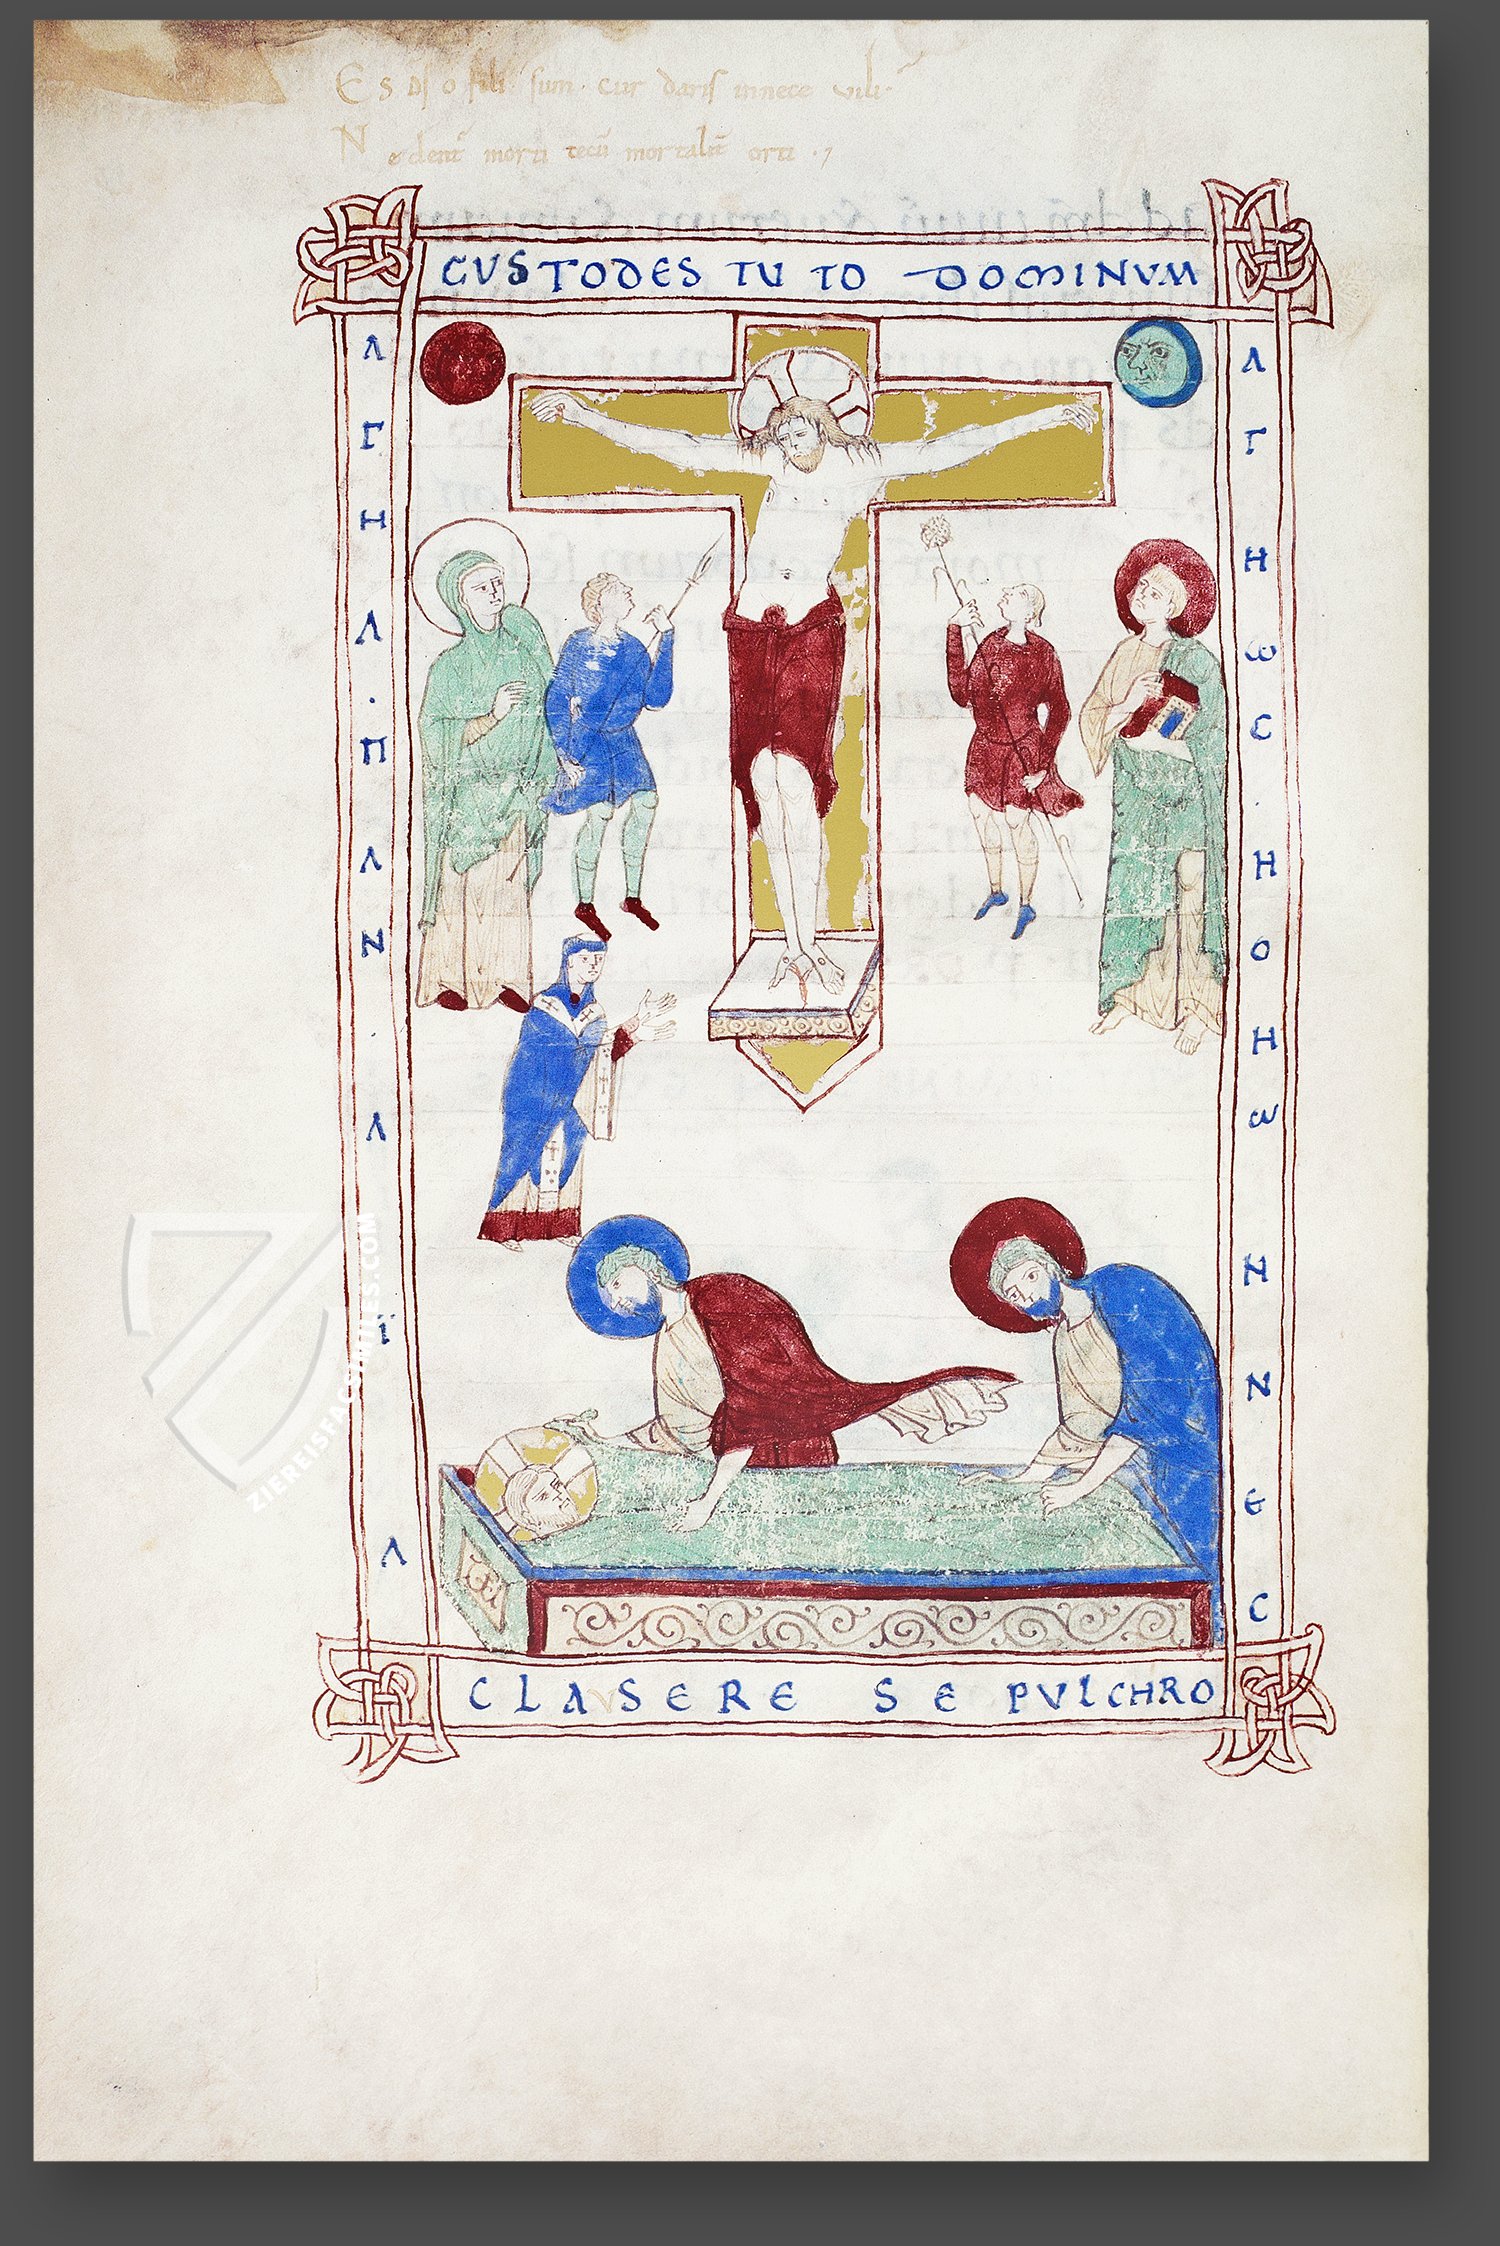 Es ds o fili sum. cur daris innece vili.
Ne dent morti tecu mortalit orti .7
CUSTODES TU TO DOMINUM
Λ Γ Η Λ . Π Λ Ν . Λ Ϊ Λ
Λ Γ Η ω C . Η Ο Η ω Ν Ν Є C
CLASERE SE PULCHRO
ZIEREISFACSIMILES.COM